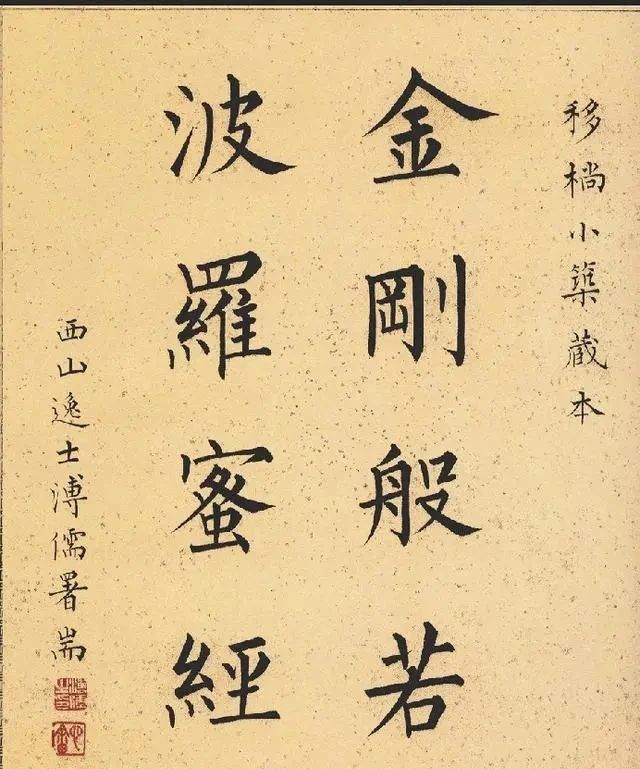 移檇小築藏本
金剛般若
波羅蜜經
西山逸士溥儒署耑